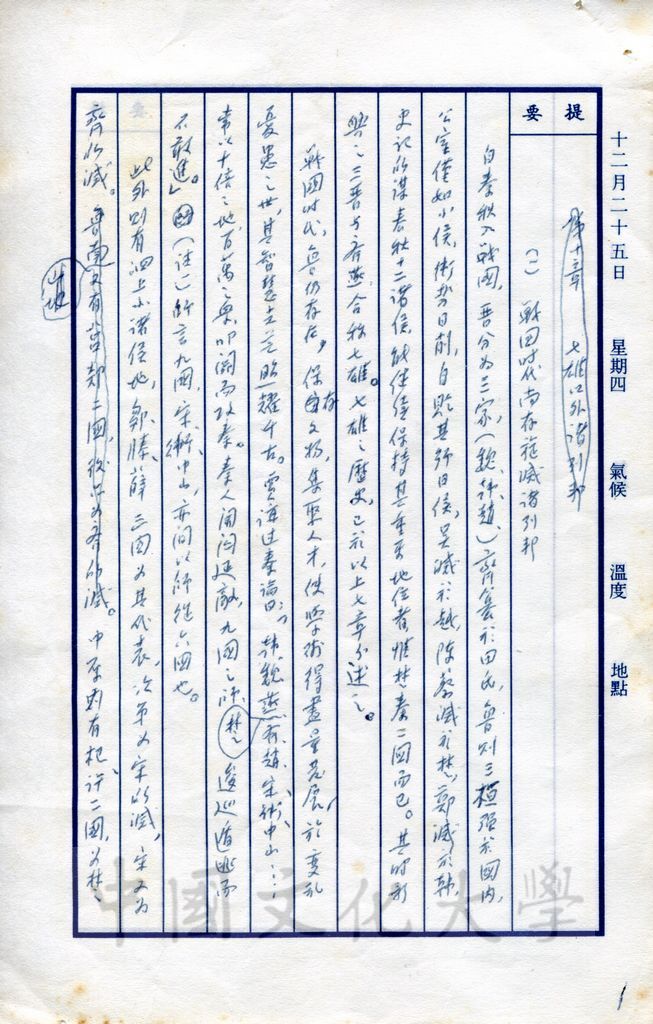 十二月二十五日 星期四 氣候 溫度 地點
提要
第十章 七雄以外諸列邦
(一) 戰国时代尚存旋滅諸列邦
自春秋入戰國，晋分为三家(魏、韓、趙、)齊篡於田氏，魯則三桓强於國內，
公室僅如小侯，衛势日削，自貶其号曰侯，吴滅於越，陳蔡滅於楚，鄭滅於韓，
史记所謀春秋十二諸侯，能继续保持其重要地位者惟楚秦二國而已。其时新
興之三晋与齐燕，合称七雄。七雄之歷史，已於以上七章分述之。
戰國时代，魯仍存在，保存文物，集聚人才，使學術得盡量发展，於變乱
憂患之世，其智慧之光照耀千古。賈誼过秦論曰：「韩魏燕齐趙宋衛中山……
常以十倍之地，百萬之衆，叩関而攻秦。秦人開関延敵，九國之师，逡巡遁逃而
楚
不敢進」。(註)所言九國，宋、衛、中山，亦间以师從六國也。
此外则有泗上小諸侯地，鄒、滕、薛三国为其代表，次第为宋所滅，宋又为
齊所滅。魯南又有莒、郯二國，後亦为齐所滅。中原则有杞、許二國，为楚
1
中國文化大學